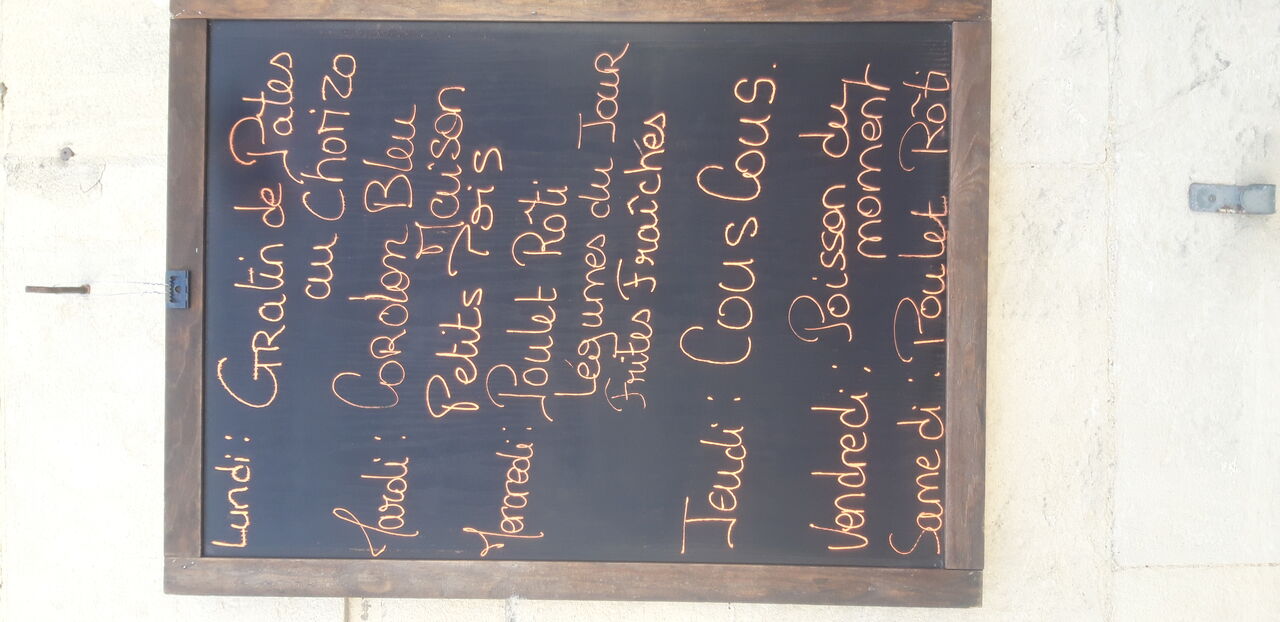 Lundi : Gratin de Pâtes
au Chorizo
Mardi : Cordon Bleu
Maison
Petits Pois
Mercredi : Poulet Rôti
Légumes du Jour
Frites Fraîches
Jeudi : Cous Cous.
Vendredi : Poisson du
moment
Samedi : Poulet Rôti